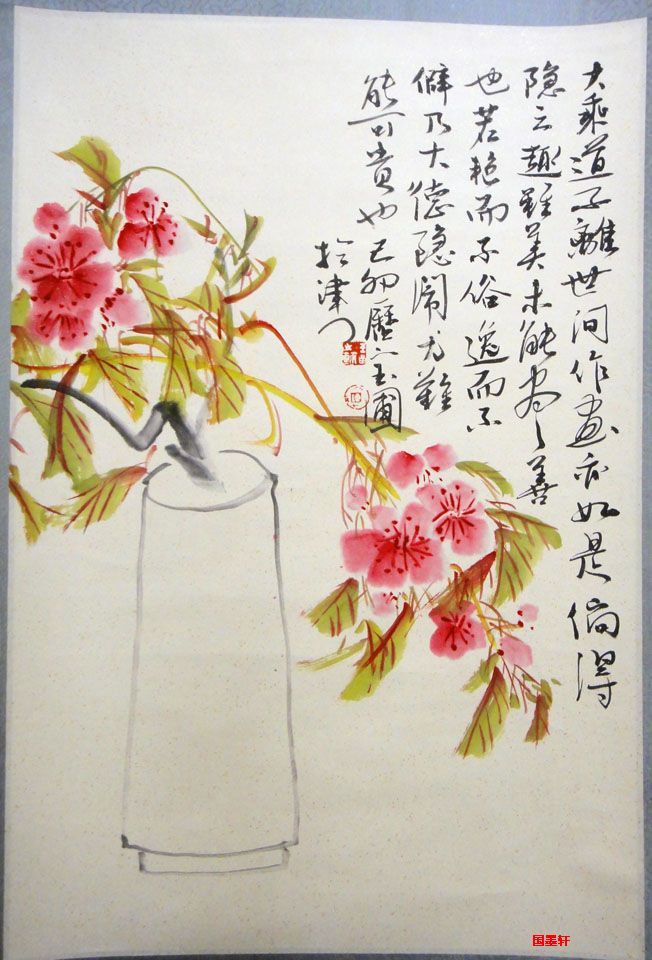 大乘道不離世间作画亦如是倘得
隐之趣雖美未能尽善
也若艳而不俗逸而不
僻乃大德隐闹方難
能可貴也己卯歷下玉圃
於津门
国墨轩